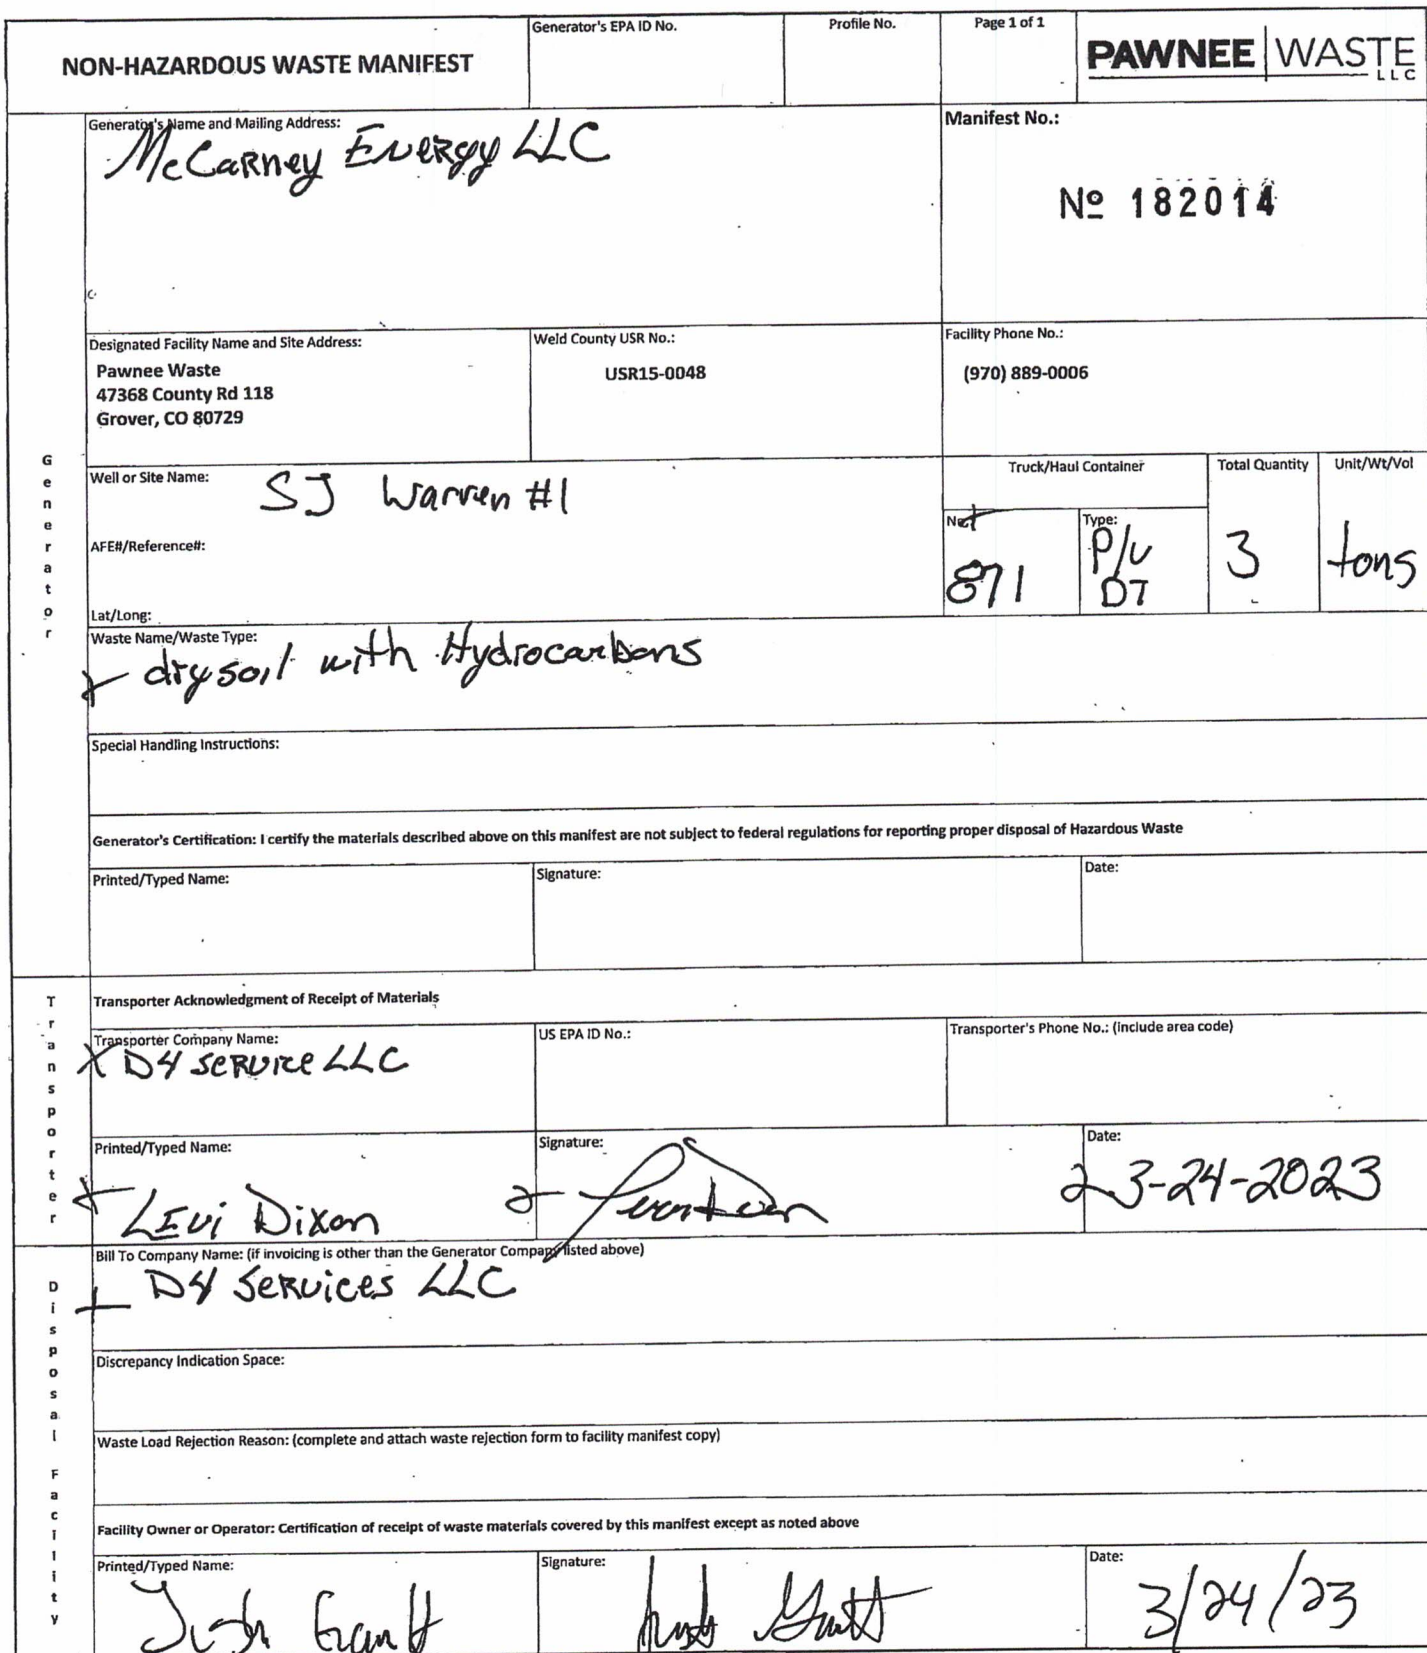 NON-HAZARDOUS WASTE MANIFEST
Generator's EPA ID No.
Profile No.
Page 1 of 1
PAWNEE WASTE
LLC
Generator's Name and Mailing Address:
McCarney Energy LLC
Manifest No.:
Nº 182014
Designated Facility Name and Site Address:
Pawnee Waste
47368 County Rd 118
Grover, CO 80729
Weld County USR No.:
USR15-0048
Facility Phone No.:
(970) 889-0006
Generator
Well or Site Name: SJ Warren #1
AFE#/Reference#:
Lat/Long:
Truck/Haul Container
Total Quantity
Unit/Wt/Vol
871
Type:
P/U
DT
3
tons
Waste Name/Waste Type:
dry soil with Hydrocarbons
Special Handling Instructions:
Generator's Certification: I certify the materials described above on this manifest are not subject to federal regulations for reporting proper disposal of Hazardous Waste
Printed/Typed Name:
Signature:
Date:
Transporter
Transporter Acknowledgment of Receipt of Materials
Transporter Company Name:
X D4 SERVICE LLC
US EPA ID No.:
Transporter's Phone No.: (include area code)
Printed/Typed Name:
Levi Dixon
Signature:
Date:
3-24-2023
Disposal Facility
Bill To Company Name: (if invoicing is other than the Generator Company listed above)
D4 Services LLC
Discrepancy Indication Space:
Waste Load Rejection Reason: (complete and attach waste rejection form to facility manifest copy)
Facility Owner or Operator: Certification of receipt of waste materials covered by this manifest except as noted above
Printed/Typed Name:
Signature:
Date:
3/24/23